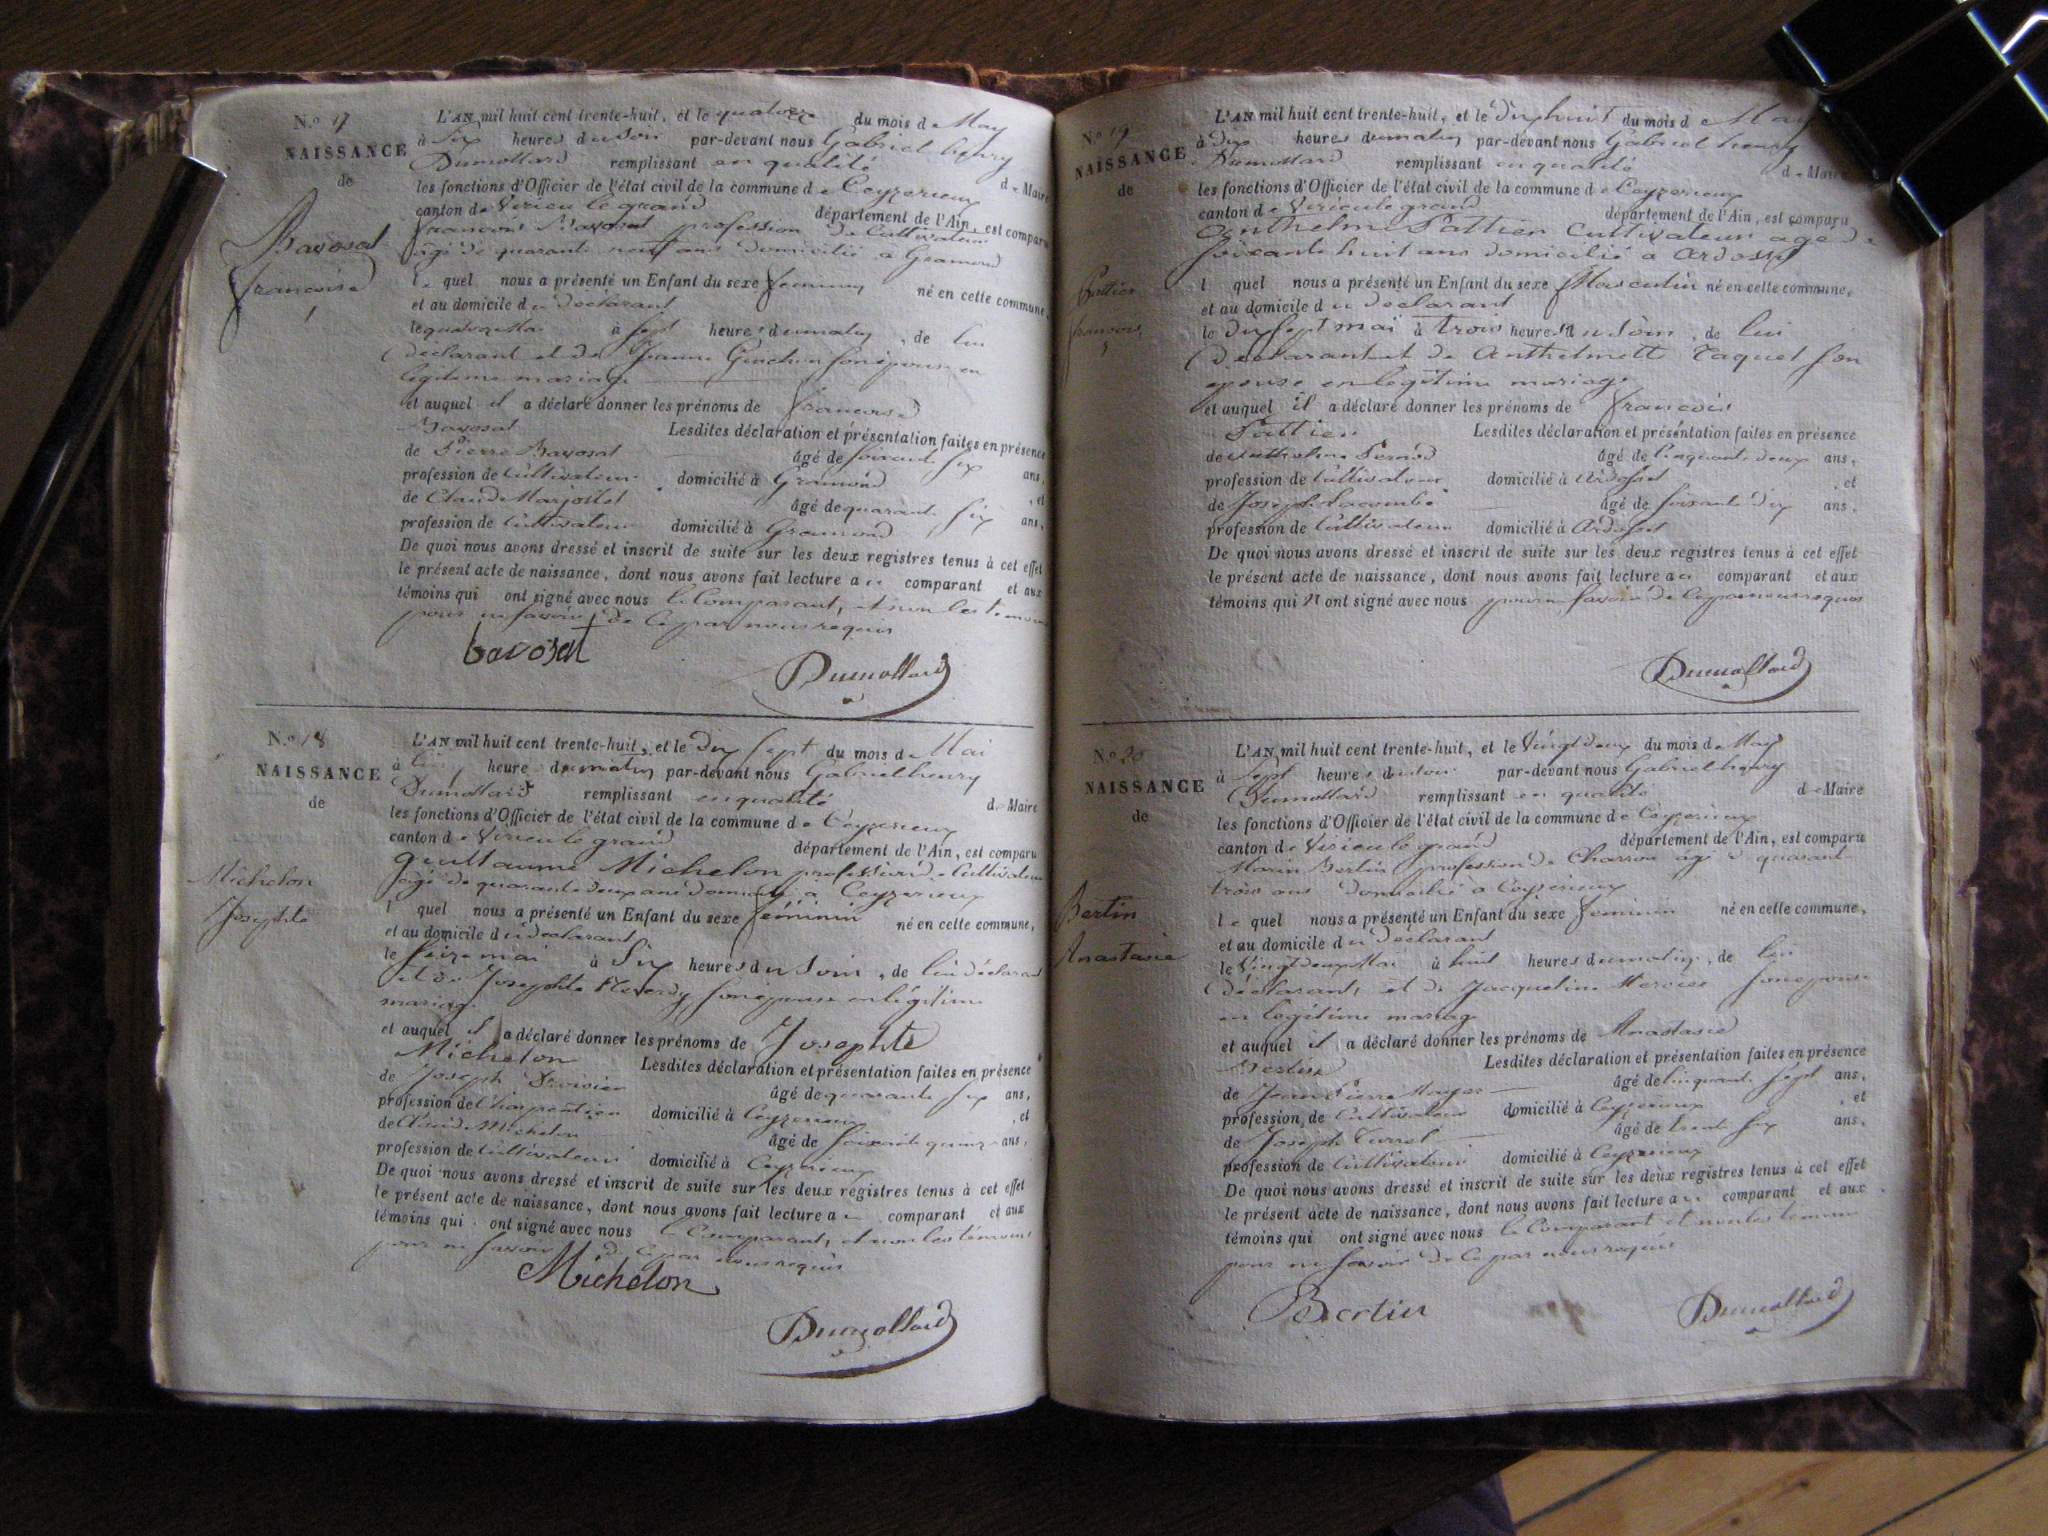 N.o 17
NAISSANCE
de
Bavosat
françoise
L'AN mil huit cent trente-huit, et le quatorze du mois de May
à Six heures du soir par-devant nous Gabriel henry
Dumollard remplissant en qualité de Maire
les fonctions d'Officier de l'état civil de la commune de Ceyzerieux
canton de Virieu le grand département de l'Ain, est comparu
françois Bavosat profession de Cultivateur
âgé de quarante neuf ans domicilié à Gramond
le quel nous a présenté un Enfant du sexe feminin né en cette commune,
et au domicile du déclarant
le quatorze Mai à Sept heures du matin, de lui
déclarant et de Jeanne son épouse en
légitime mariage
et auquel il a déclaré donner les prénoms de françoise
Bavosat Lesdites déclaration et présentation faites en présence
de Pierre Bavosat âgé de soixante six ans,
profession de Cultivateur domicilié à Gramond, et
de Claude Marjollet âgé de quarante six ans,
profession de Cultivateur domicilié à Gramond
De quoi nous avons dressé et inscrit de suite sur les deux registres tenus à cet effet
le présent acte de naissance, dont nous avons fait lecture au comparant et aux
témoins qui ont signé avec nous le Comparant, et non les témoins
pour ne savoir de ce par nous requis
bavosat
Dumollard
N.o 18
NAISSANCE
de
Michelon
Josephte
L'AN mil huit cent trente-huit, et le dix sept du mois de Mai
à heure du matin par-devant nous Gabriel henry
Dumollard remplissant en qualité de Maire
les fonctions d'Officier de l'état civil de la commune de Ceyzerieux
canton de Virieu le grand département de l'Ain, est comparu
guillaume Michelon profession de Cultivateur
âgé de quarante deux ans domicilié à Ceyzerieux
l quel nous a présenté un Enfant du sexe féminin né en cette commune,
et au domicile du déclarant
le seize mai à Six heures du Soir, de lui déclarant
et de Josephte son épouse en légitime
mariage
et auquel il a déclaré donner les prénoms de Josephte
Michelon Lesdites déclaration et présentation faites en présence
de Joseph âgé de quarante six ans,
profession de Charpentier domicilié à Ceyzerieux, et
de Claude Michelon âgé de soixante quinze ans,
profession de Cultivateur domicilié à Ceyzerieux
De quoi nous avons dressé et inscrit de suite sur les deux registres tenus à cet effet
le présent acte de naissance, dont nous avons fait lecture au comparant et aux
témoins qui ont signé avec nous le Comparant, et non les témoins
pour ne savoir de ce par nous requis
Michelon
Dumollard
N.o 19
NAISSANCE
de
Pattier
françois
L'AN mil huit cent trente-huit, et le dix huit du mois de May
à dix heures du matin par-devant nous Gabriel henry
Dumollard remplissant en qualité de Maire
les fonctions d'Officier de l'état civil de la commune de Ceyzerieux
canton de Virieu le grand département de l'Ain, est comparu
Anthelme Pattier Cultivateur agé de
soixante huit ans domicilié à Ardosset
l quel nous a présenté un Enfant du sexe Masculin né en cette commune,
et au domicile du declarant
le dix sept mai à trois heures du Soir, de lui
declarant et de Anthelmette Taquet son
epouse en legitime mariage
et auquel il a déclaré donner les prénoms de françois
Pattier Lesdites déclaration et présentation faites en présence
de Anthelme âgé de Cinquante deux ans,
profession de Cultivateur domicilié à Ardosset, et
de Joseph Lacombe âgé de soixante dix ans,
profession de Cultivateur domicilié à Ardosset
De quoi nous avons dressé et inscrit de suite sur les deux registres tenus à cet effet
le présent acte de naissance, dont nous avons fait lecture au comparant et aux
témoins qui n'ont signé avec nous pour ne savoir de ce par nous requis
Dumollard
N.o 20
NAISSANCE
de
Bertin
Anastasie
L'AN mil huit cent trente-huit, et le Vingt deux du mois de May
à Sept heures du soir par-devant nous Gabriel henry
Dumollard remplissant en qualité de Maire
les fonctions d'Officier de l'état civil de la commune de Ceyzerieux
canton de Virieu le grand département de l'Ain, est comparu
Marin Bertin profession de Charron âgé de quarante
trois ans domicilié à Ceyzerieux
le quel nous a présenté un Enfant du sexe feminin né en cette commune,
et au domicile du déclarant
le Vingt deux Mai à huit heures du matin, de lui
déclarant, et de Jacqueline Mercier son épouse
en légitime mariage
et auquel il a déclaré donner les prénoms de Anastasie
Bertin Lesdites déclaration et présentation faites en présence
de Jean Pierre âgé de Cinquante Sept ans,
profession de Cultivateur domicilié à Ceyzerieux, et
de Joseph Curret âgé de trente six ans,
profession de Cultivateur domicilié à Ceyzerieux
De quoi nous avons dressé et inscrit de suite sur les deux registres tenus à cet effet
le présent acte de naissance, dont nous avons fait lecture au comparant et aux
témoins qui ont signé avec nous le Comparant et non les témoins
pour ne savoir de ce par nous requis
Bertin
Dumollard